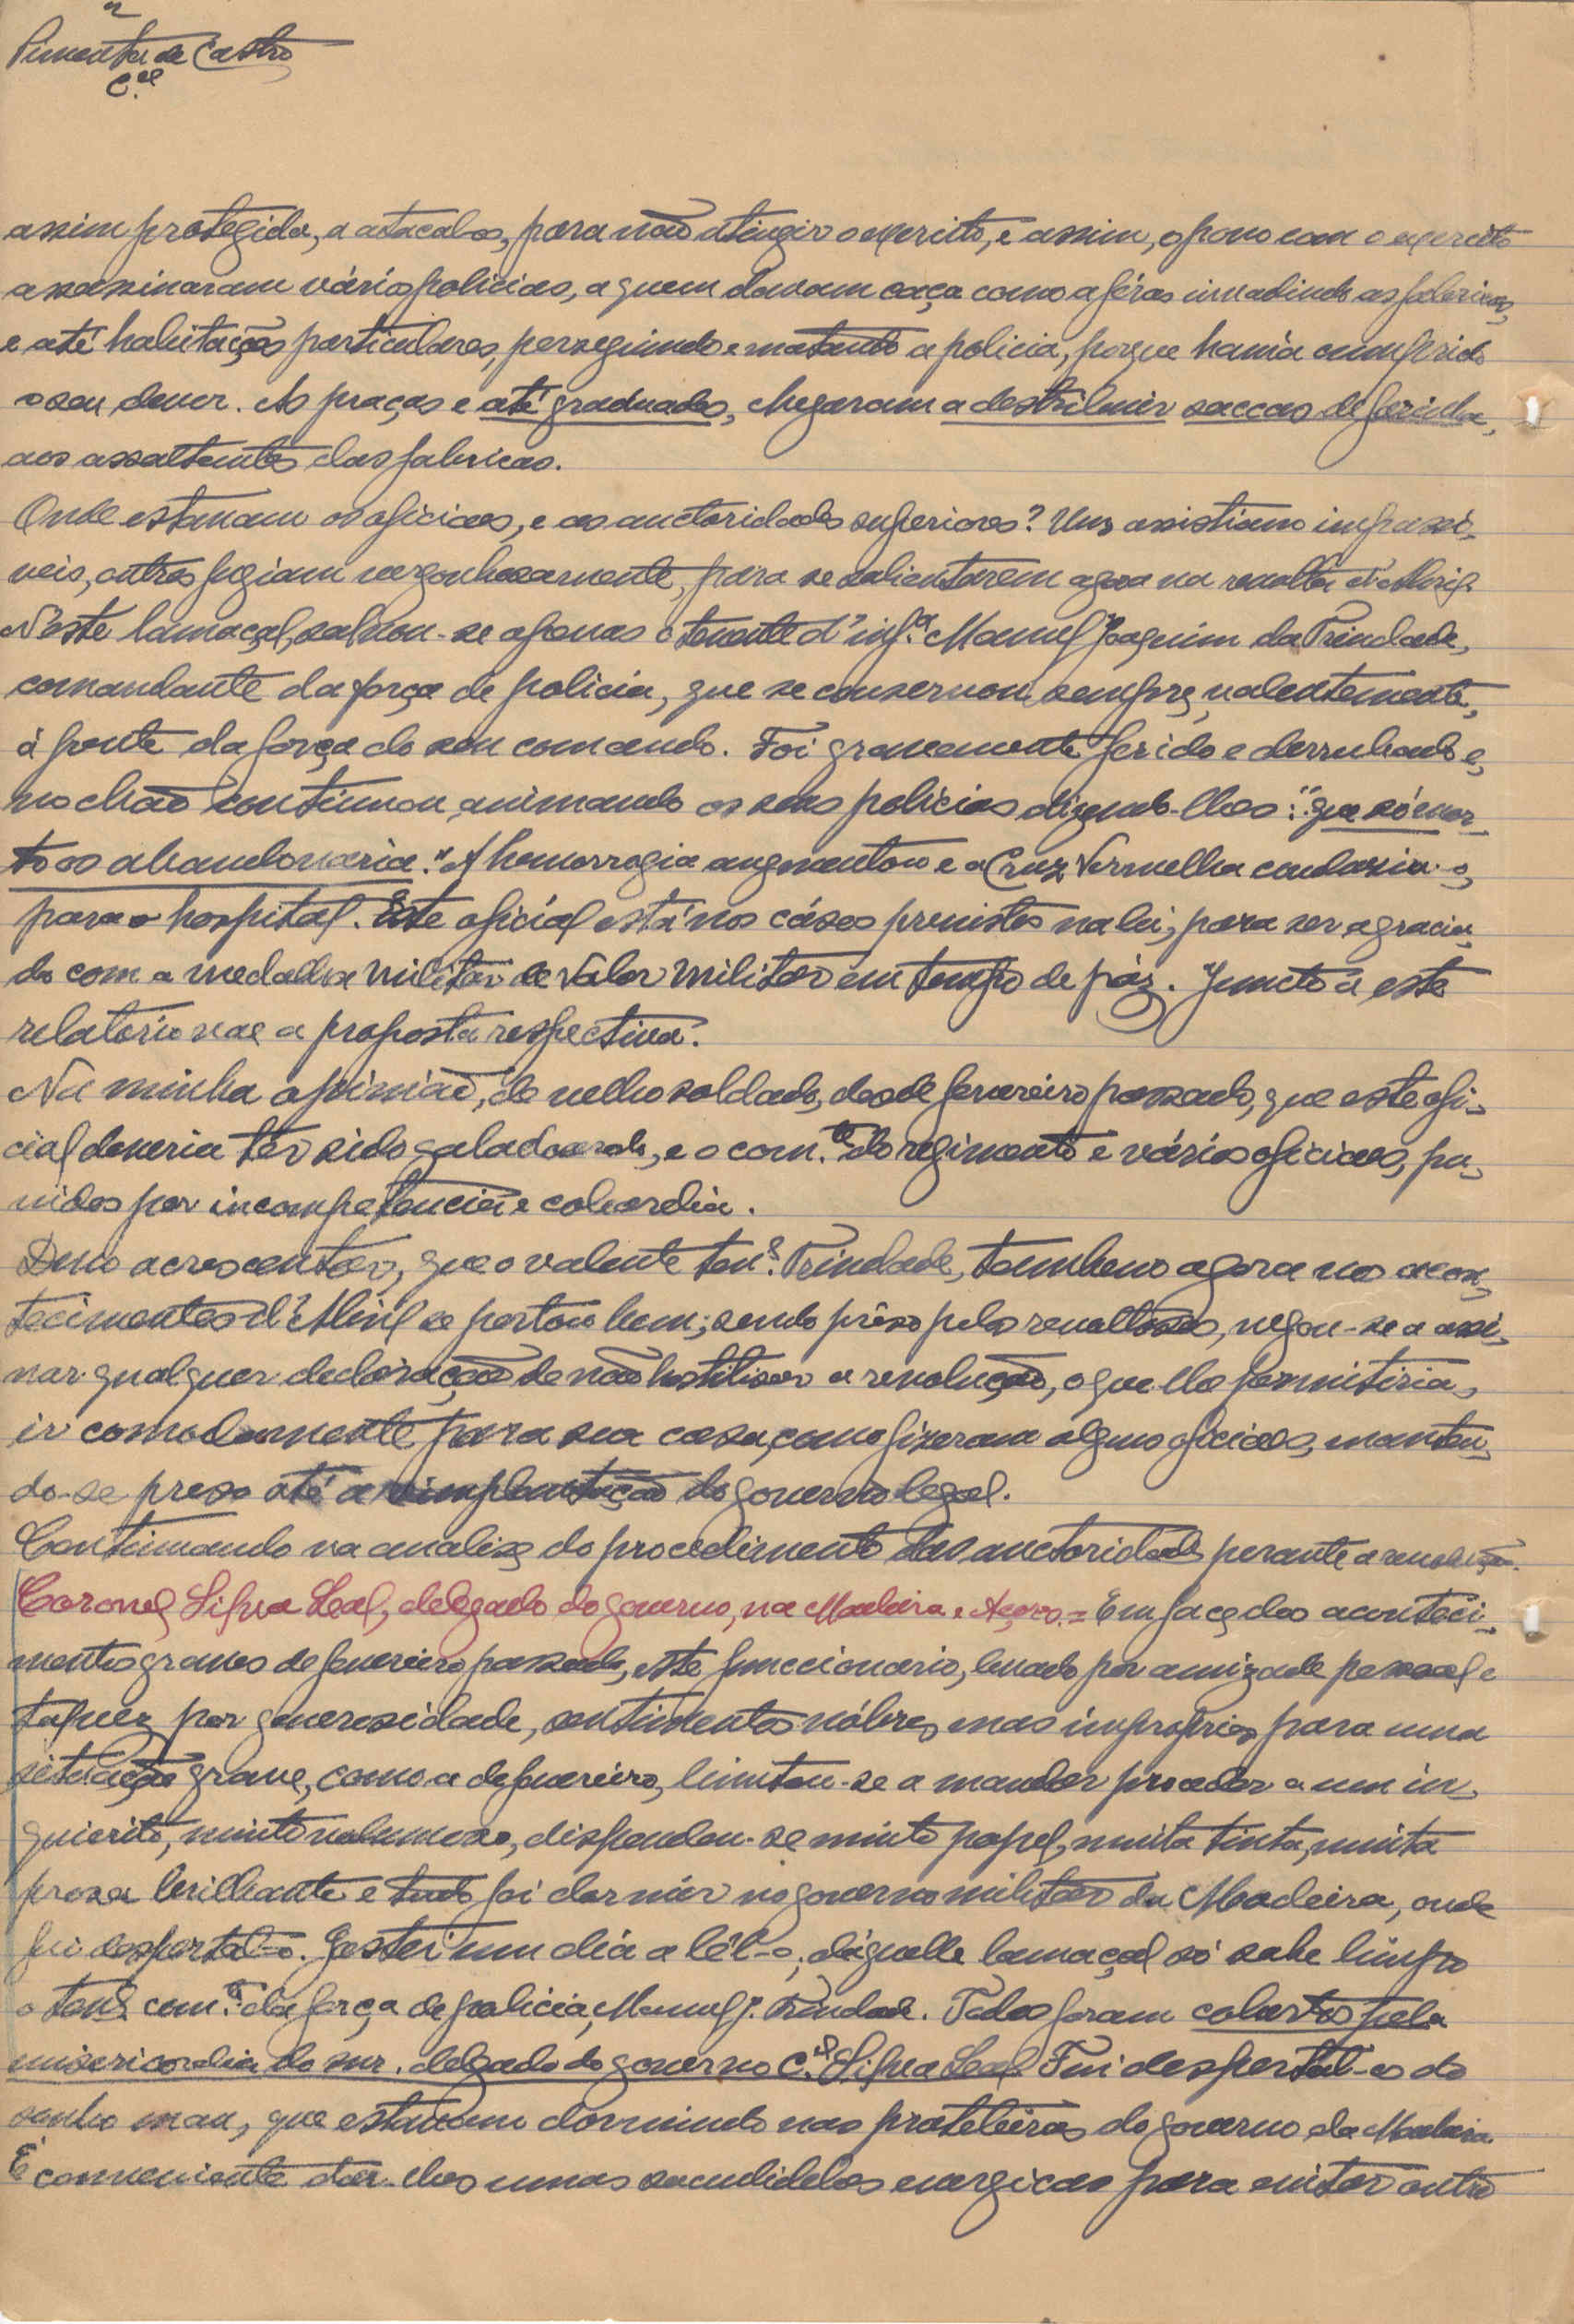 Pimenta de Castro
C.el
assim protegida, a atacal-os, para não atingir o exercito, e assim, o povo com o exercito
assassinaram vários policias, a quem davam caça como a féras invadindo as fabricas,
e até habitações particulares, perseguindo e matando a policia, porque havia cumprido
o seu dever. As praças e até graduados, chegaram a destribuir saccas de farinha,
aos assaltantes das fabricas.
Onde estavam os oficiaes, e as auctoridades superiores? Uns assistiam impassi-
veis, outros fugiam vergonhosamente, para se salientarem agora na revolta d'Abril.
N'este lamaçal, salvou-se apenas o tenente d'inf.ª Manuel Joaquim da Trindade,
comandante da força de policia, que se conservou sempre, valentemente,
á frente da força do seu comando. Foi gravemente ferido e derrubado e,
no chão continuou, animando os seus policias dizendo-lhes: "que só mor-
to os abandonaria." A hemorragia augmentou e a Cruz Vermelha conduziu-o,
para o hospital. Este oficial está nos cásos previstos na lei, para ser agracia-
do com a medalha militar de valor militar em tempo de páz. Juncto a este
relatório vae a proposta respectiva.
Na minha opinião, de velho soldado, desde fevereiro passado, que este ofi-
cial deveria ter sido galadoado, e o com.te do regimento e vários oficiaes, pu-
nidos por incompetencia e cobardia.
Devo acrescentar, que o valente ten.e Trindade, tambem agora nos acon-
tecimentos d'Abril se portou bem; sendo prêso pelos revoltosos, negou-se a assi-
nar qualquer declaração de não hostilisar a revolução, o que lhe permitiria,
ir comodamente para sua casa, como fizeram alguns oficiaes, manten-
do-se preso até a reimplantação do governo legal.
Continuando na analise do procedimento das auctoridades perante a revolução.
Coronel Silva Leal, delegado do governo, na Madeira e Açores. = Em face dos aconteci-
mentos graves de fevereiro passado, este funccionario, levado por amizade pessoal e
talvez por generosidade, sentimentos nóbres, mas improprios para uma
situação grave, como a de fevereiro, limitou-se a mandar proceder a um in-
quierito, muito volumoso, dispendeu-se muito papel, muita tinta, muita
prosa brilhante e tudo foi dormir no governo militar da Madeira, onde
fui despertal-o. Gastei um dia a lêl-o; dáquelle lamaçal só sahe limpo
o ten.e com.te da força de policia, Manuel J. Trindade. Todos foram cobertos pela
misericordia do snr. delgado do governo C.el Silva Leal. Fui despertal-os do
sonho mau, que estavam dormindo nas prateleiras do governo da Madeira.
É conveniente dar-lhes umas sacudidelas energicas para evitar outro